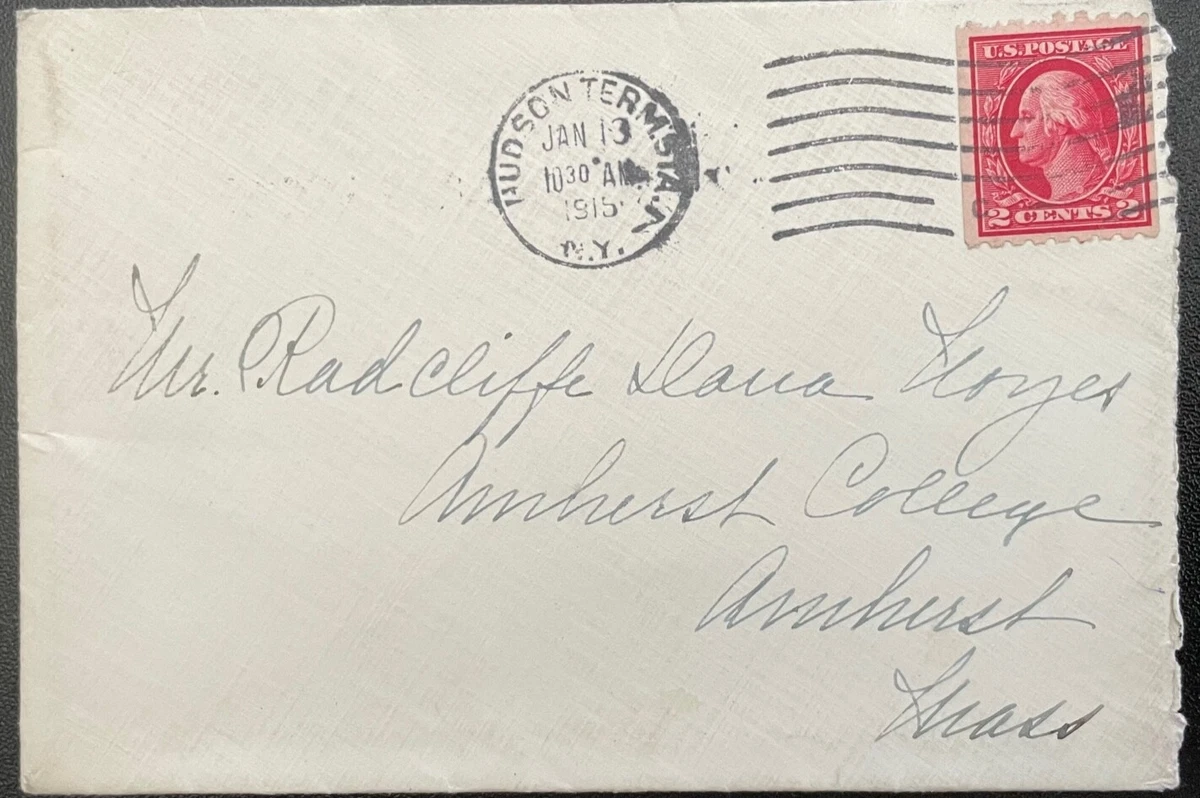 HUDSON TERM. STA. N.Y.
JAN 13
10 30 AM
1915
U.S. POSTAGE
2 CENTS 2
Mr. Radcliffe Dana Noyes
Amherst College
Amherst
Mass